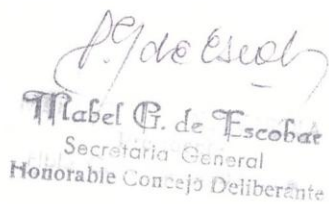 Mabel G. de Escobar
Secretaria General
Honorable Concejo Deliberante